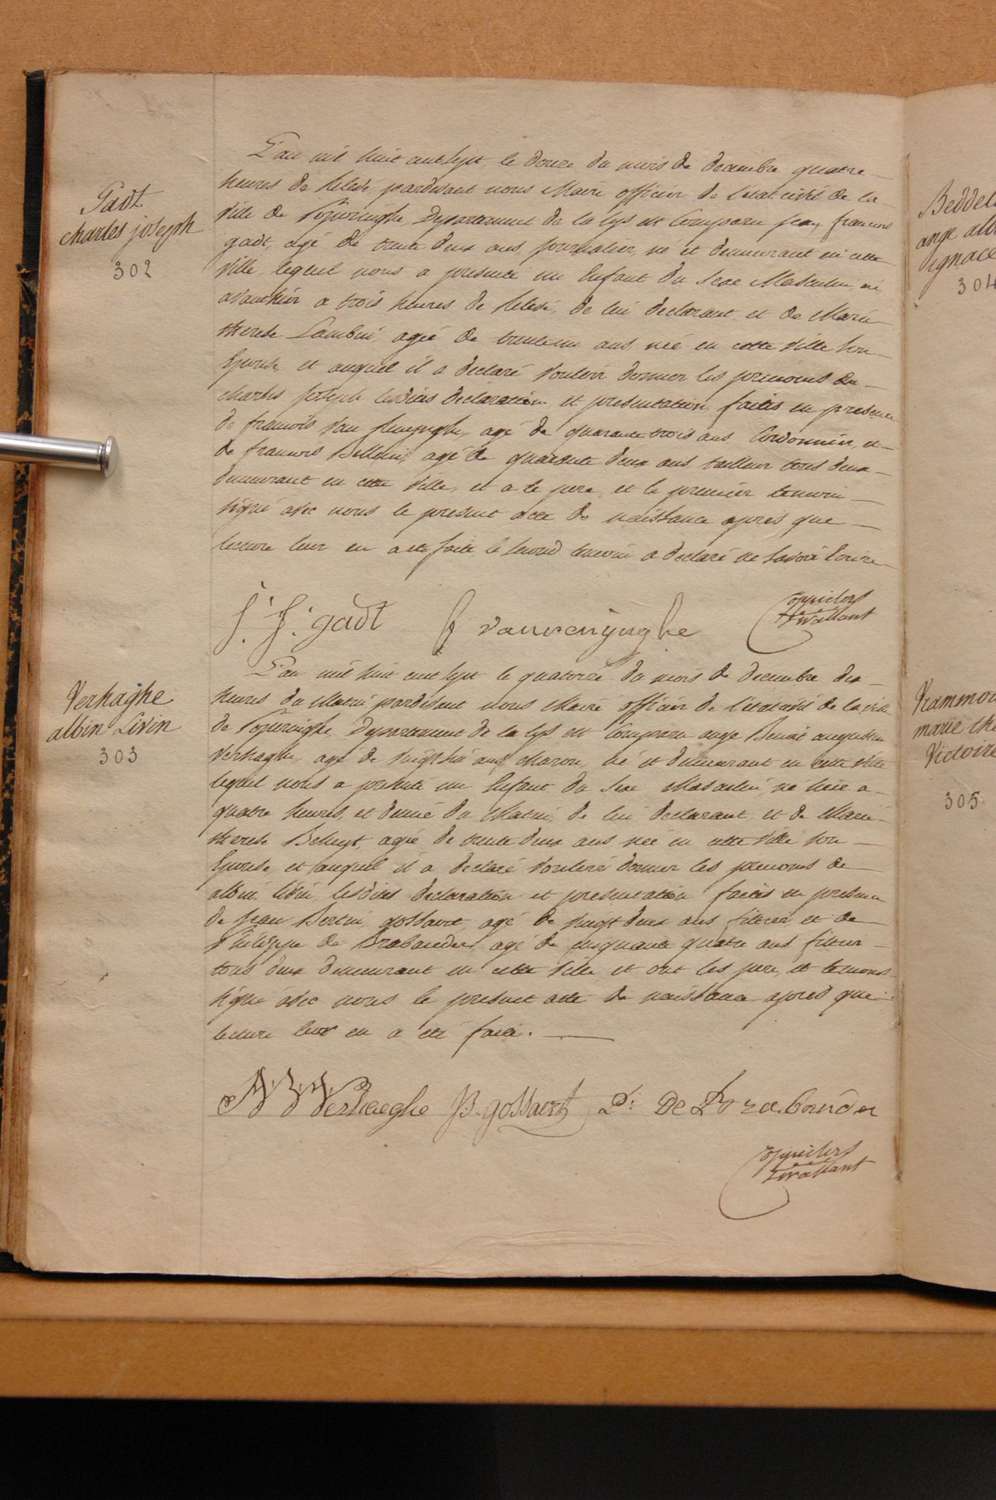 Gadt
charles joseph
302
L'an mil huit cent sept le douze du mois de decembre quatre
heures de relevé pardevant nous Maire officier de l'etat civil de la
ville de Poperinghe Departement de la Lys est comparu jean francois
gadt, agé de trente deux ans journalier, né et demeurant en cette
ville lequel nous a presenté un Enfant du Sexe Masculin né
avanthier a trois heures de relevé, de lui declarant et de Marie
therese agée de ans née en cette ville son
Epouse et auquel il a declaré vouloir donner les prenoms de
charles joseph lesdites declaration et presentation faites en presence
de francois van renynghe, agé de quarante trois ans Cordonnier et
de francois agé de quarante deux ans tailleur tous deux
demeurant en cette ville, et a le pere et le premier temoin
signé avec nous le present acte de naissance apres que
lecture leur en a été faite le second temoin a declaré ne savoir ecrire
j. f. gadt f vanrenynghe
Verhaghe
albin Livin
303
L'an mil huit cent sept le quatorze du mois de decembre dix
heures du Matin pardevant nous Maire officier de l'etat civil de la ville
de Poperinghe Departement de la Lys est Comparu ange Benoit augustin
Verhaghe agé de ans Macon, né et demeurant en cette ville
lequel nous a presenté un Enfant du Sexe Masculin né hier a
quatre heures et demie du Matin de lui declarant et de Marie
therese agée de trente deux ans née en cette ville son
Epouse et auquel il a declaré vouloir donner les prenoms de
albin livin lesdites declaration et presentation faites en presence
de jean Bertin gossaert, agé de vingt deux ans et de
Philippe de Brabander agé de cinquante quatre ans
tous deux demeurant en cette ville et ont les pere et temoins
signé avec nous le present acte de naissance apres que
lecture leur en a été faite.
Verhaeghe B. gossaert P: De Brabander
ange
ignace
304
marie
Victoire
305